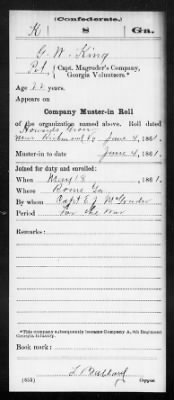 (Confederate.)
K 8 Ga.
G. W. King
Pvt., Capt. Magruder's Company,
Georgia Volunteers.*
Age years.
Appears on
Company Muster-in Roll
of the organization named above. Roll dated
Howard's Grove
Near Richmond Va June 4, 1861.
Muster-in to date June 4, 1861.
Joined for duty and enrolled:
When May 18, 1861.
Where Rome Ga.
By whom Capt. E. J. Magruder
Period For the War
Remarks:
*This company subsequently became Company A, 8th Regiment
Georgia Infantry.
Book mark:
Copyist.